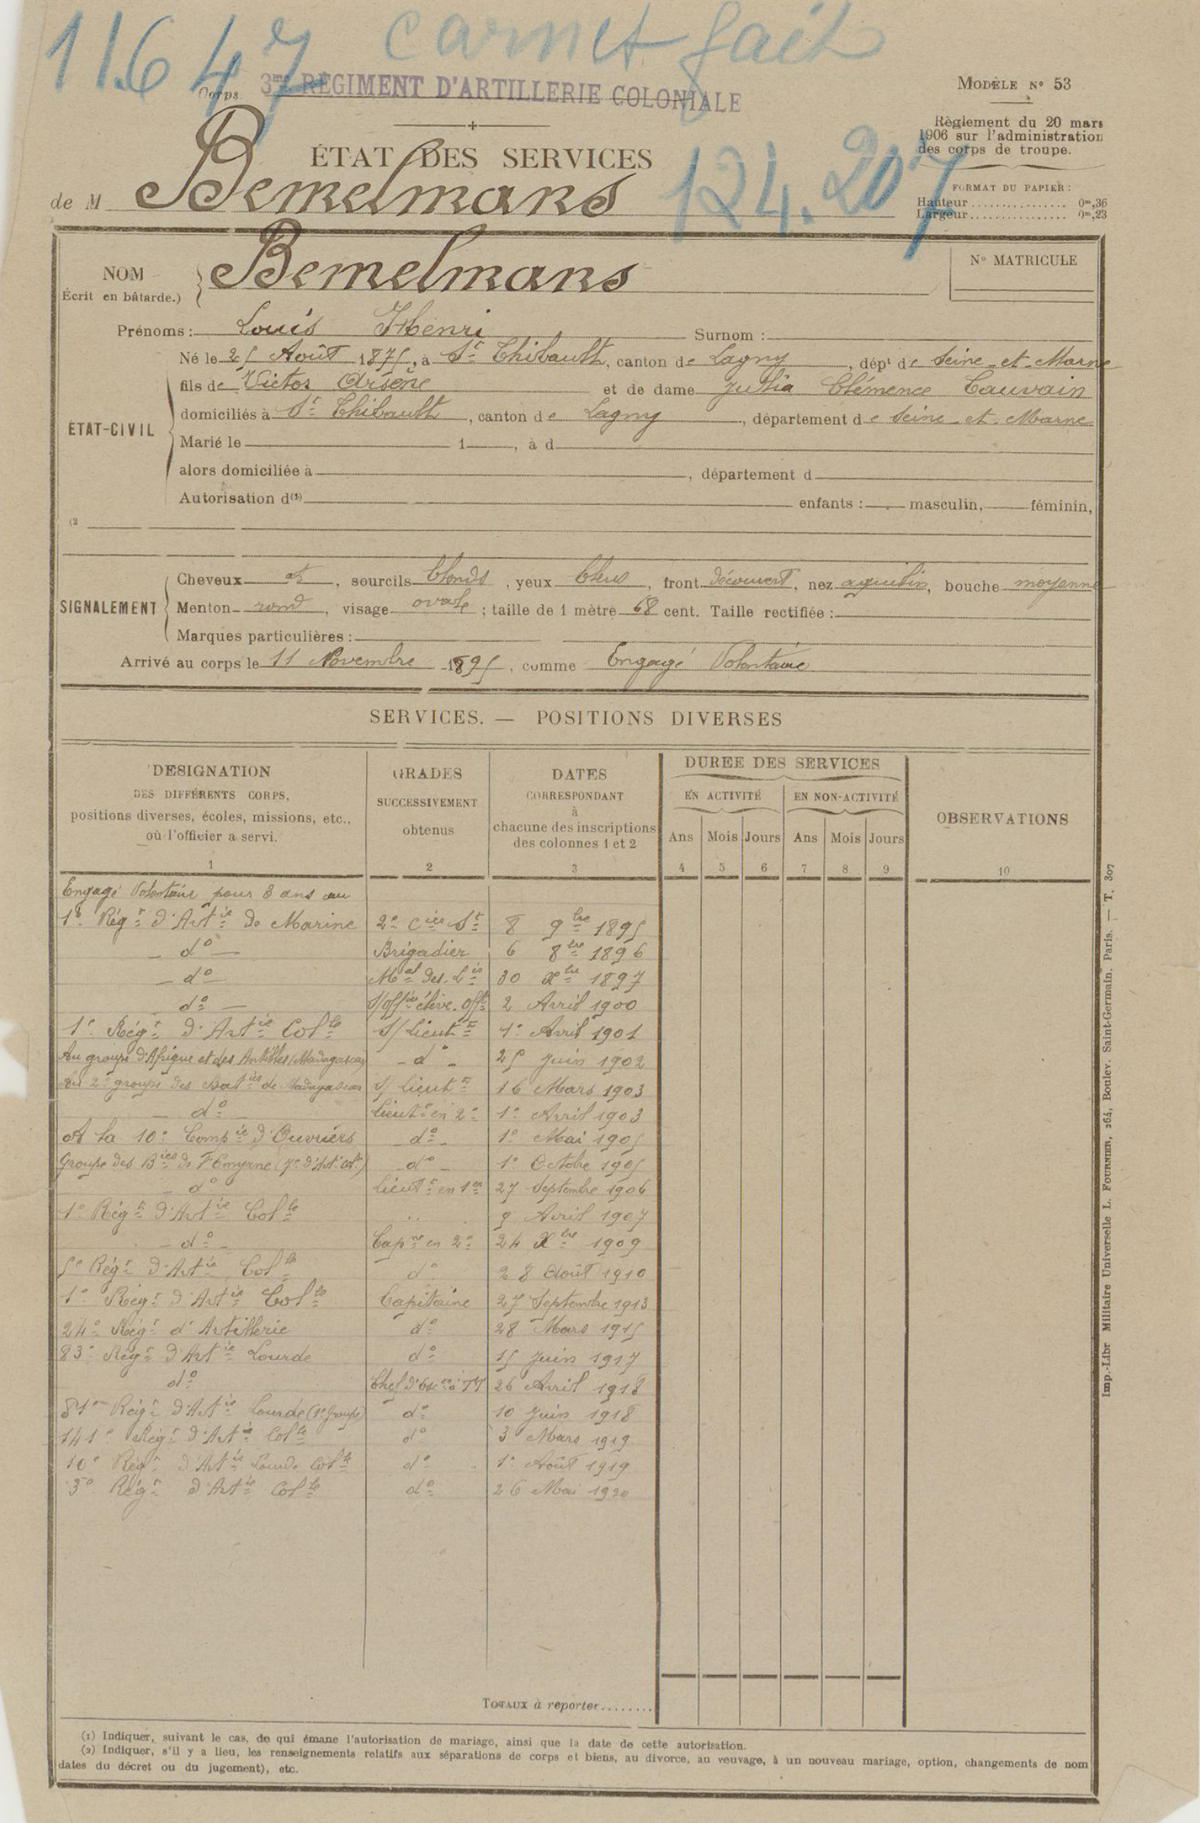 11.647 carnet fait
Corps 3me RÉGIMENT D'ARTILLERIE COLONIALE
MODÈLE No 53
Règlement du 20 mars
1906 sur l'administration
des corps de troupe.
ÉTAT DES SERVICES
124.207
FORMAT DU PAPIER :
Hauteur ............... 0m,36
Largeur ............... 0m,23
de M Bemelmans
NOM Bemelmans
Écrit en bâtarde.)
No MATRICULE
Prénoms : Louis Henri Surnom :
Né le 25 Août 1875, à St Thibault, canton de Lagny, dépt de Seine et Marne
fils de Victor Arsène et de dame Julia Clémence Cauvain
domiciliés à St Thibault, canton de Lagny, département de Seine et Marne
ÉTAT-CIVIL
Marié le 1 , à d
alors domiciliée à , département d
Autorisation d(1) enfants : masculin, féminin,
(2
SIGNALEMENT
Cheveux et, sourcils blonds, yeux bleus, front découvert, nez aquilin, bouche moyenne
Menton rond, visage ovale ; taille de 1 mètre 68 cent. Taille rectifiée :
Marques particulières :
Arrivé au corps le 11 Novembre 1895, comme Engagé Volontaire
SERVICES. — POSITIONS DIVERSES
DÉSIGNATION
DES DIFFÉRENTS CORPS,
positions diverses, écoles, missions, etc.,
où l'officier a servi.
1
GRADES
SUCCESSIVEMENT
obtenus
2
DATES
CORRESPONDANT
à
chacune des inscriptions
des colonnes 1 et 2
3
DURÉE DES SERVICES
EN ACTIVITÉ EN NON-ACTIVITÉ
Ans Mois Jours Ans Mois Jours
4 5 6 7 8 9
OBSERVATIONS
10
Engagé Volontaire pour 3 ans au
1er Régt d'Artie de Marine 2e Cier St 8 9bre 1895
do Brigadier 6 8bre 1896
do Mal des Lis 30 Xbre 1897
do S/offier élève offr 2 Avril 1900
1e Régt d'Artie Colle S/Lieutt 1er Avril 1901
Au groupe d'Afrique et des Antilles (Madagascar) do 25 Juin 1902
Au 2e groupe des Baties de Madagascar S/Lieutt 16 Mars 1903
do Lieutt en 2e 1er Avril 1903
A la 10e Compie d'Ouvriers do 1er Mai 1905
Groupe des Bies de l'Emyrne (7e d'Art. Col.) do 1er Octobre 1905
do Lieutt en 1er 27 Septembre 1906
1e Régt d'Artie Colle .. 9 Avril 1907
do Capne en 2e 24 Xbre 1909
5e Régt d'Artie Colle do 28 Août 1910
1e Régt d'Artie Colle Capitaine 27 Septembre 1913
24e Régt d'Artillerie do 28 Mars 1915
83e Régt d'Artie Lourde do 15 Juin 1917
do Chef d'Escon à TT 26 Avril 1918
81me Régt d'Artie Lourde (1er Groupe) do 10 Juin 1918
141e Régt d'Artie Colle do 3 Mars 1919
10e Régt d'Artie Lourde Colle do 1er Août 1919
3e Régt d'Artie Colle do 26 Mai 1920
TOTAUX à reporter........
(1) Indiquer, suivant le cas, de qui émane l'autorisation de mariage, ainsi que la date de cette autorisation.
(2) Indiquer, s'il y a lieu, les renseignements relatifs aux séparations de corps et biens, au divorce, au veuvage, à un nouveau mariage, option, changements de nom
dates du décret ou du jugement), etc.
Imp.-Libr Militaire Universelle L. FOURNIER, 264, Boulev. Saint-Germain, Paris. — T. 307